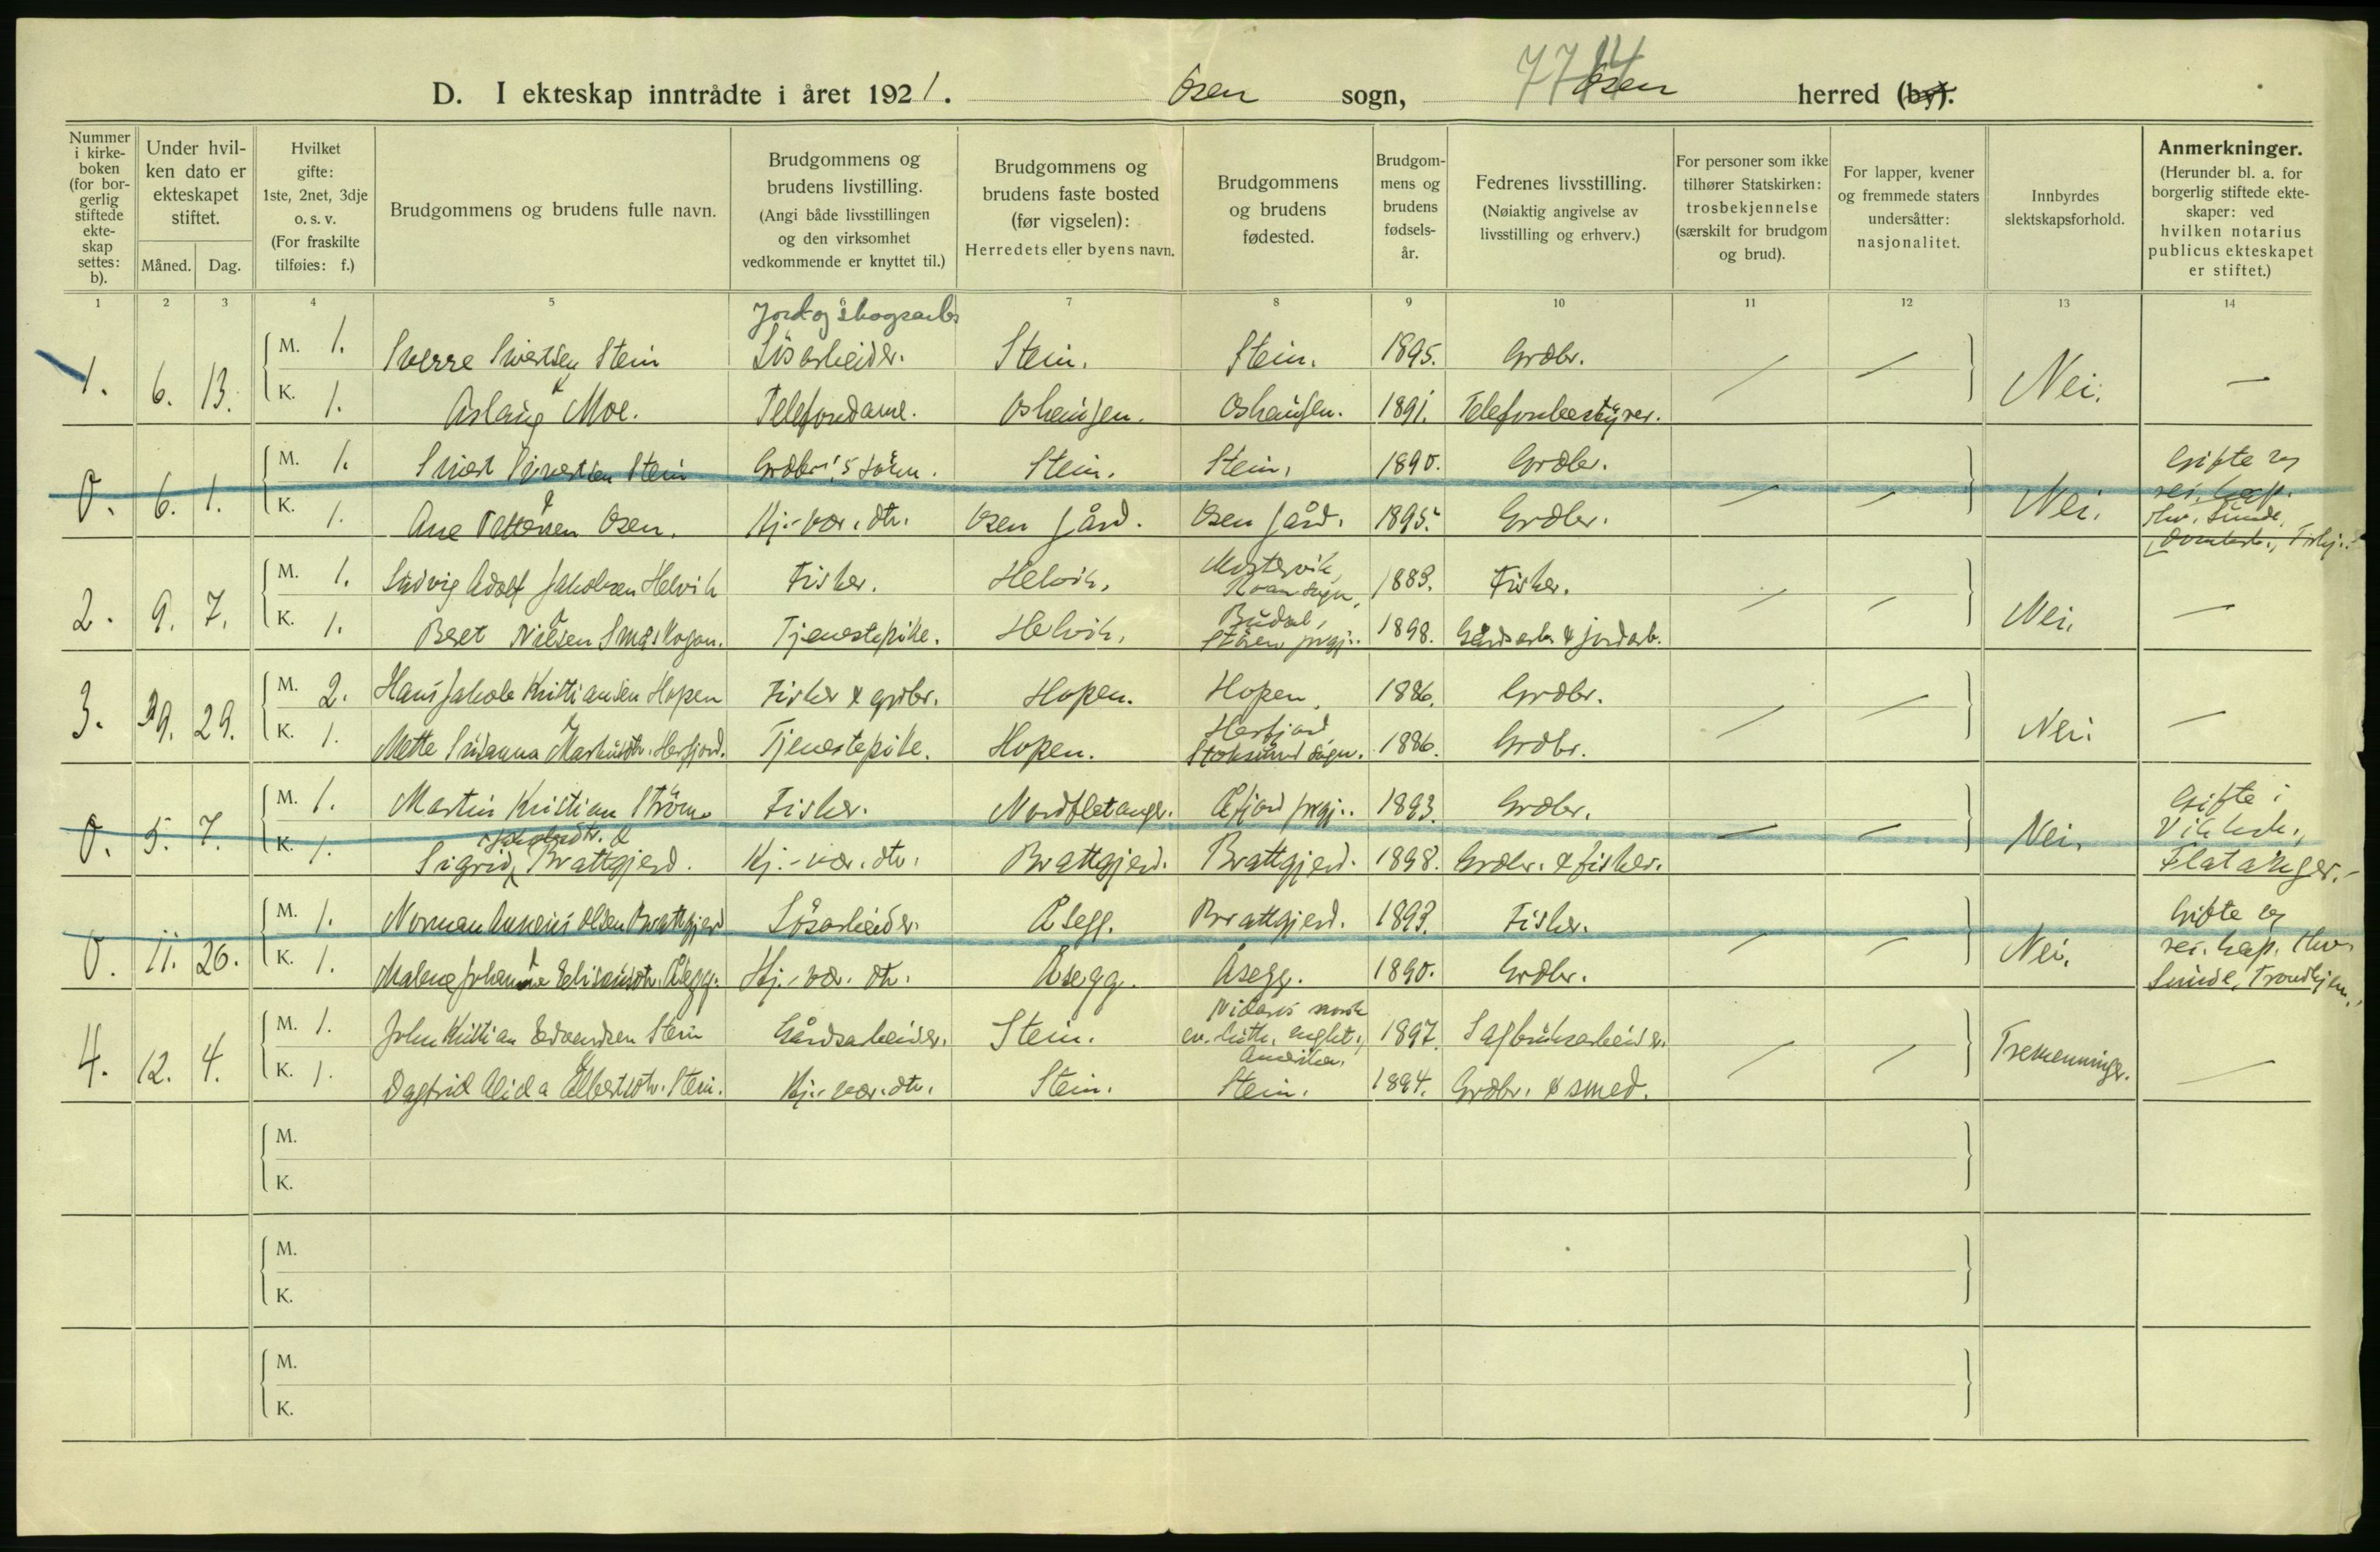 D. I ekteskap inntrådte i året 1921. Osen sogn, Osen herred (by).
7714
Nummer i kirke- boken (for bor- gerlig stiftede ekte- skap settes: b).
Under hvil- ken dato er ekteskapet stiftet.
Måned. Dag.
Hvilket gifte: 1ste, 2net, 3dje o. s. v. (For fraskilte tilføies: f.)
Brudgommens og brudens fulle navn.
Brudgommens og brudens livstilling. (Angi både livsstillingen og den virksomhet vedkommende er knyttet til.)
Brudgommens og brudens faste bosted (før vigselen): Herredets eller byens navn.
Brudgommens og brudens fødested.
Brudgom- mens og brudens fødsels- år.
Fedrenes livsstilling. (Nøiaktig angivelse av livsstilling og erhverv.)
For personer som ikke tilhører Statskirken: trosbekjennelse (særskilt for brudgom og brud).
For lapper, kvener og fremmede staters undersåtter: nasjonalitet.
Innbyrdes slektskapsforhold.
Anmerkninger. (Herunder bl. a. for borgerlig stiftede ekte- skaper: ved hvilken notarius publicus ekteskapet er stiftet.)
1 2 3 4 5 7 8 9 10 11 12 13 14
Jord og skogsarb.
1. 6. 13. M. 1. Sverre Sivertsen Stein Lösarbeider. Stein. Stein. 1895. Grdbr. Nei. —
K. 1. & Aslaug Moe. Telefondame. Oshaugen. Oshaugen. 1891. Telefonbestyrer.
0. 6. 1. M. 1. Sivert Sivertsen Stein Grdbr.'s sönn. Stein. Stein. 1890. Grdbr. Nei. Gifte av res. kap. Thv. Sunde,
K. 1. & Ane Osen. Hj.-vær. dtr. Osen gård. Osen gård. 1895. Grdbr.
2. 9. 7. M. 1. Ludvig Adolf Jakobsen Helvik Fisker. Helvik. Roan sogn, 1883. Fisker. Nei. —
K. 1. & Beret Nilsen Småskogan. Tjenestepike. Helvik. Budal, Stören prgj.. 1898. Gårdsarb. & jordarb.
3. 9. 29. M. 2. Hans Jakob Kristiansen Hopen Fisker & grdbr. Hopen. Hopen, 1886. Grdbr. Nei. —
K. 1. & Mette Susanna Markusdtr. Herfjord. Tjenestepike. Hopen. Herfjord Stoksund sogn. 1886. Grdbr.
0. 5. 7. M. 1. Martin Kristian Ström Fisker. Nordflatanger. Åfjord prgj.. 1893. Grdbr. Nei. Gifte i Vik kirke, Flatanger.
K. 1. Sigrid Jakobsdtr. & Brattgjerd. Hj.-vær. dtr. Brattgjerd. Brattgjerd. 1898. Grdbr. & fisker.
0. 11. 26. M. 1. Norman Olsen Brattgjerd Lösarbeider. Åsegg. Brattgjerd. 1893. Fisker. Nei. Gifte av res. kap. Thv. Sunde, Trondhjem.
K. 1. & Malene Johanna Åsegg. Hj.-vær. dtr. Åsegg. Åsegg. 1890. Grdbr.
4. 12. 4. M. 1. John Kristian Edvardsen Stein Gårdsarbeider. Stein. Nidaros norsk ev. luth. Amerika. 1897. Sagbruksarbeider. Tremenninger. —
K. 1. & Dagfrid Alida Elbertsdtr. Stein. Hj.-vær. dtr. Stein. Stein. 1894. Grdbr. & smed.
M.
K.
M.
K.
M.
K.